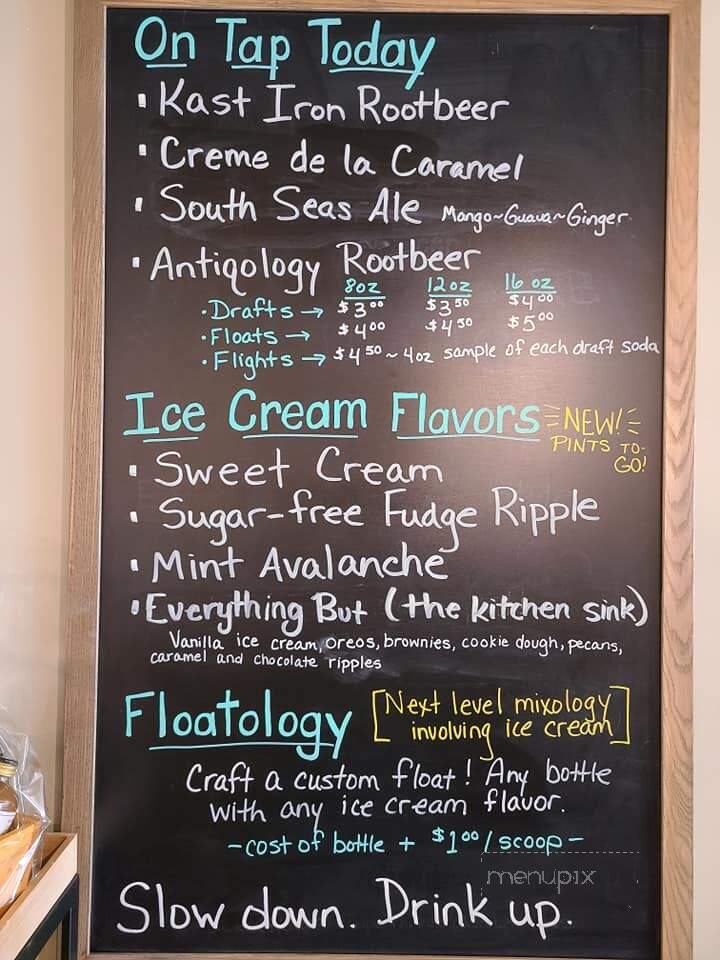 On Tap Today
▪ Kast Iron Rootbeer
▪ Creme de la Caramel
▪ South Seas Ale Mango~Guava~Ginger
▪ Antiqology Rootbeer
8oz 12oz 16 oz
• Drafts → $3.00 $3.50 $4.00
• Floats → $4.00 $4.50 $5.00
• Flights → $4.50 ~ 4oz sample of each draft soda
Ice Cream Flavors NEW!
PINTS TO-
GO!
▪ Sweet Cream
▪ Sugar-free Fudge Ripple
▪ Mint Avalanche
▪ Everything But (the kitchen sink)
Vanilla ice cream, oreos, brownies, cookie dough, pecans,
caramel and chocolate ripples
Floatology [Next level mixology
involving ice cream]
Craft a custom float! Any bottle
with any ice cream flavor.
- cost of bottle + $1.00/scoop -
menupix
Slow down. Drink up.